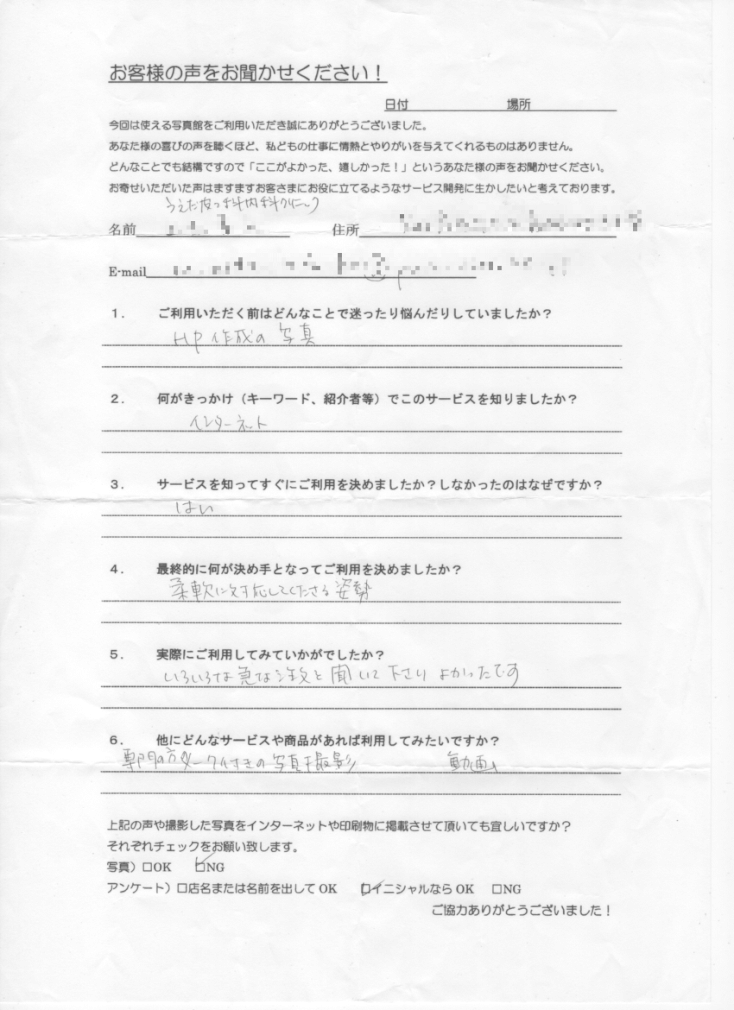 お客様の声をお聞かせください！
日付 場所
今回は使える写真館をご利用いただき誠にありがとうございました。
あなた様の喜びの声を聴くほど、私どもの仕事に情熱とやりがいを与えてくれるものはありません。
どんなことでも結構ですので「ここがよかった、嬉しかった！」というあなた様の声をお聞かせください。
お寄せいただいた声はますますお客さまにお役に立てるようなサービス開発に生かしたいと考えております。
うえた皮フ科内科クリニック
名前 住所
E-mail
１． ご利用いただく前はどんなことで迷ったり悩んだりしていましたか？
HP作成の写真
２． 何がきっかけ（キーワード、紹介者等）でこのサービスを知りましたか？
インターネット
３． サービスを知ってすぐにご利用を決めましたか？しなかったのはなぜですか？
はい
４． 最終的に何が決め手となってご利用を決めましたか？
柔軟に対応してくださる姿勢
５． 実際にご利用してみていかがでしたか？
いろいろな急な注文と聞いて下さりよかったです
６． 他にどんなサービスや商品があれば利用してみたいですか？
専門の方 の写真撮影 動画
上記の声や撮影した写真をインターネットや印刷物に掲載させて頂いても宜しいですか？
それぞれチェックをお願い致します。
写真）□OK □NG
アンケート）□店名または名前を出して OK □イニシャルなら OK □NG
ご協力ありがとうございました！